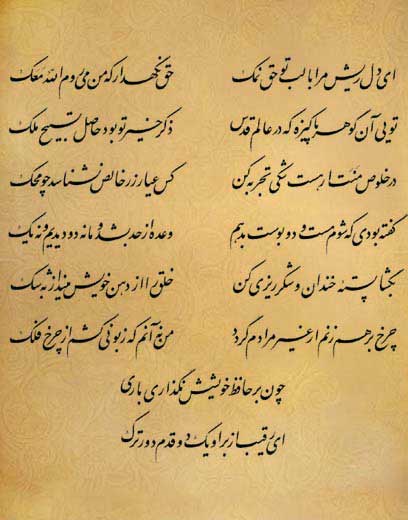 ای دل ریش مرا با لب تو حق نمک حق نگهدار که من می روم الله معک
تویی آن گوهر پاکیزه که در عالم قدس ذکر خیر تو بود حاصل تسبیح ملک
در خلوص منت ار هست شکی تجربه کن کس عیار زر خالص نشناسد چو محک
گفته بودی که شوم مست و دو بوست بدهم وعده از حد بشد و ما نه دو دیدیم و نه یک
بگشا پسته خندان و شکر ریزی کن خلق را از دهن خویش مینداز به شک
چرخ بر هم زنم ار غیر مرادم گردد من نه آنم که زبونی کشم از چرخ فلک
چون بر حافظ خویشش نگذاری باری
ای رقیب از بر او یک دو قدم دورترک